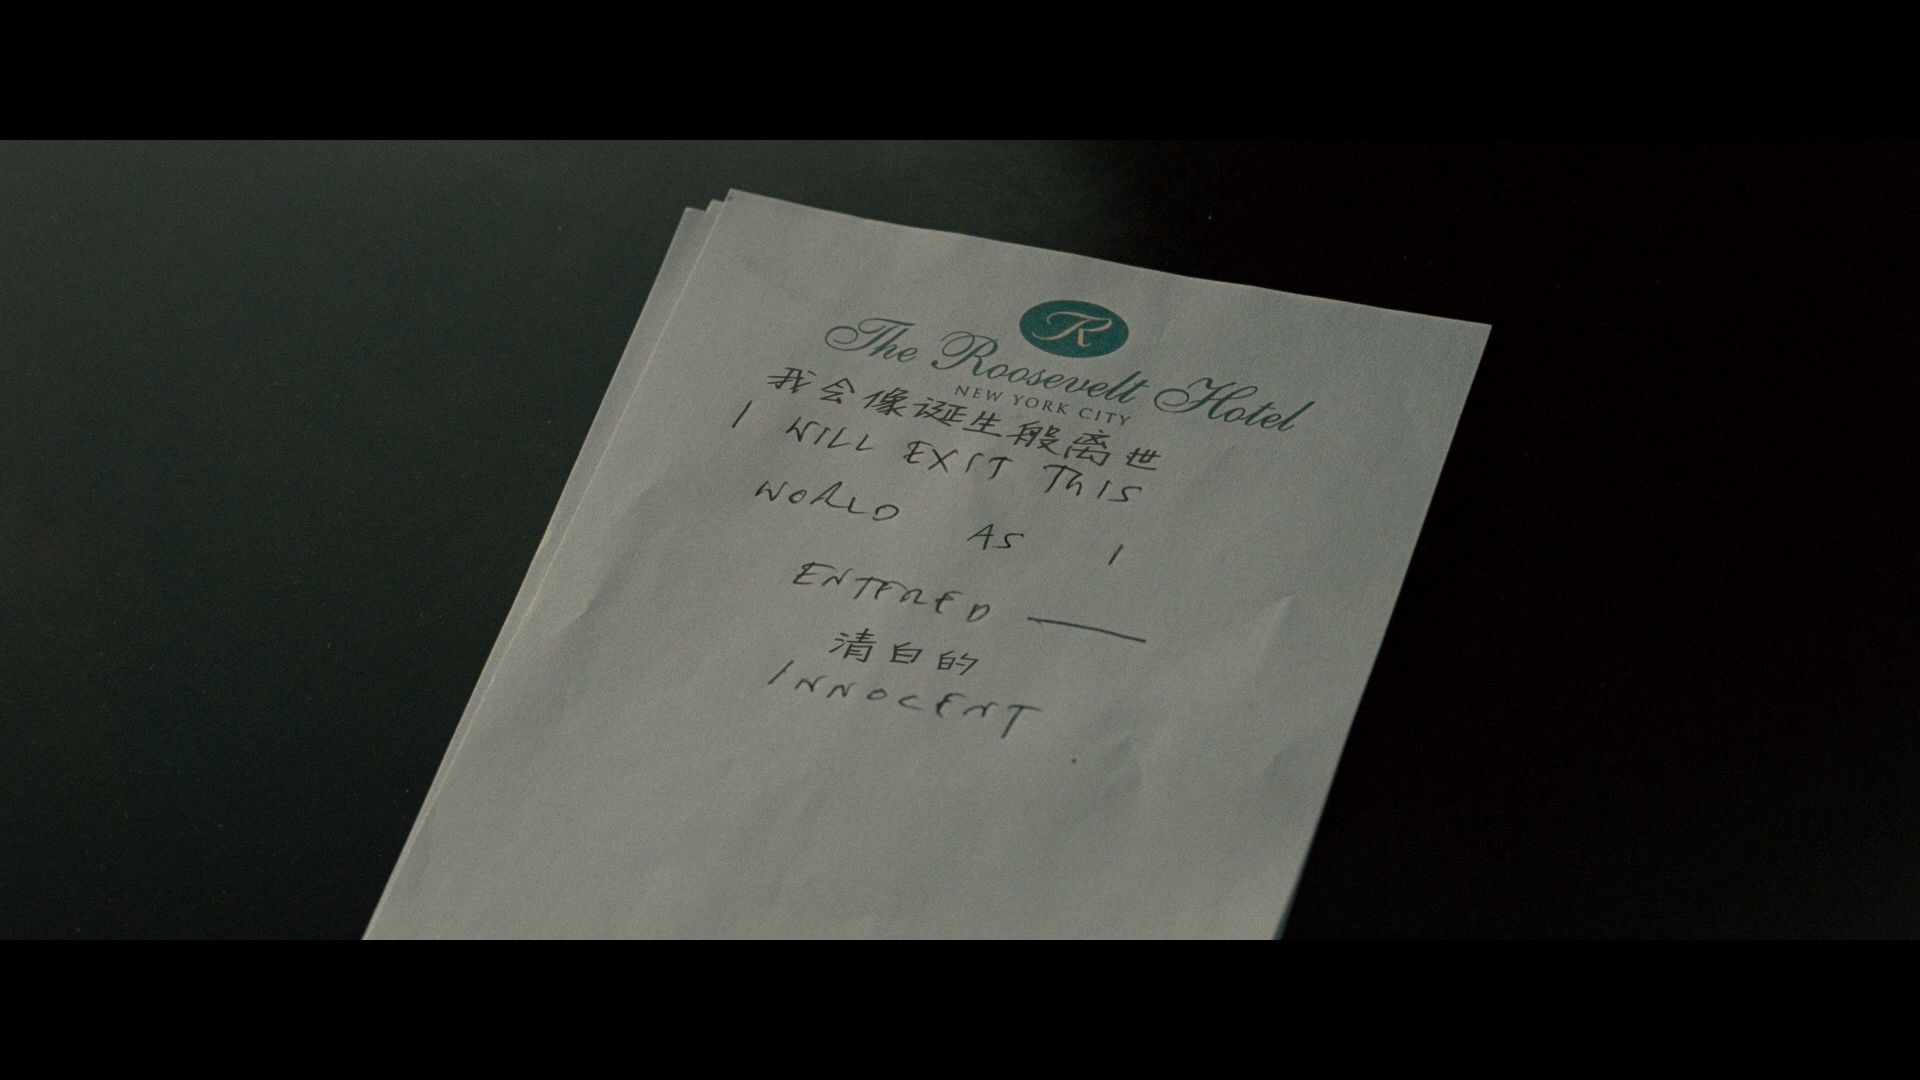 R
The Roosevelt Hotel
NEW YORK CITY
我会像诞生般离世
I WILL EXIT THIS
WORLD AS I
ENTERED —
清白的
INNOCENT